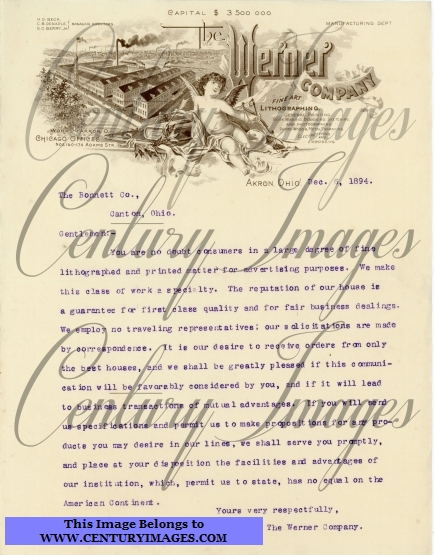 CAPITAL $ 3 500 000
MANUFACTURING DEPT
The
Werner
COMPANY
FINE ART
LITHOGRAPHING,
CHICAGO OFFICE
AKRON, OHIO, Dec. 6, 1894.
The Bonnett Co.,
Canton, Ohio.
Gentlemen:-
You are no doubt consumers in a large degree of fine
lithographed and printed matter for advertising purposes. We make
this class of work a specialty. The reputation of our house is
a guarantee for first class quality and for fair business dealings.
We employ no traveling representatives; our solicitations are made
by correspondence. It is our desire to receive orders from only
the best houses, and we shall be greatly pleased if this communi-
cation will be favorably considered by you, and if it will lead
to business transactions of mutual advantages. If you will send
us specifications and permit us to make propositions for any pro-
ducts you may desire in our lines, we shall serve you promptly,
and place at your disposition the facilities and advantages of
our institution, which, permit us to state, has no equal on the
American Continent.
Yours very respectfully,
The Werner Company.
Century Images
Century Images
Century Images
This Image Belongs to
WWW.CENTURYIMAGES.COM